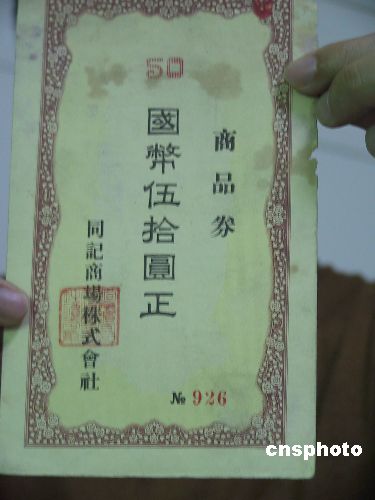 50
商品券
國幣伍拾圓正
同記商場株式會社
№ 926
cnsphoto